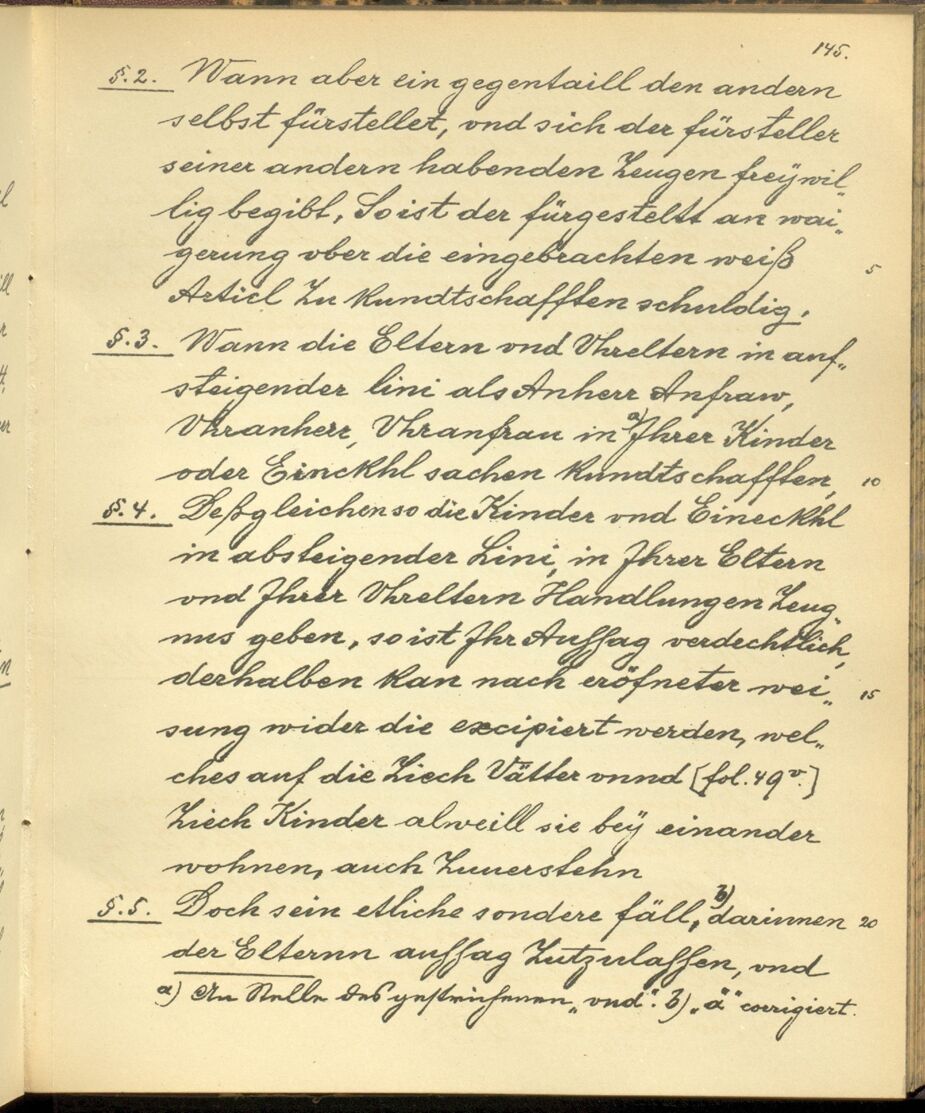 145.
§.2. Wann aber ein gegentaill den andern
selbst fürstellet, vnd sich der fürsteller
seiner andern habenden Zeugen freÿwil„
lig begibt, So ist der fürgesteltt an wai„
gerung vber die eingebrachten weiß 5
Articl Zu kundtschafften schuldig.
§.3. Wann die Eltern vnd Vhreltern in auf„
steigender lini als Anherr Anfraw,
Vhranherr, Vhranfrau in a) Jhrer Kinder
oder Einckhl sachen kundtschafften, 10
§.4. Deßgleichen so die Kinder vnd Eineckhl
in absteigender Lini, in Jhrer Eltern
vnd Jhrer Vhreltern Handlungen Zeug„
nus geben, so ist Jhr Aussag verdechtlich,
derhalben kan nach eröfneter wei„ 15
sung wider die excipiert werden, wel„
ches auf die Ziech Vätter vnnd [fol. 49v.]
Ziech Kinder alweill sie beÿ einander
wohnen, auch Zuuerstehn
§.5. Doch sein etliche sondere fäll, b) darinnen 20
der Elternn aussag Zutzulassen, vnd
a) An Stelle des gestrichenen „vnd“. b) „ä“ corrigiert.